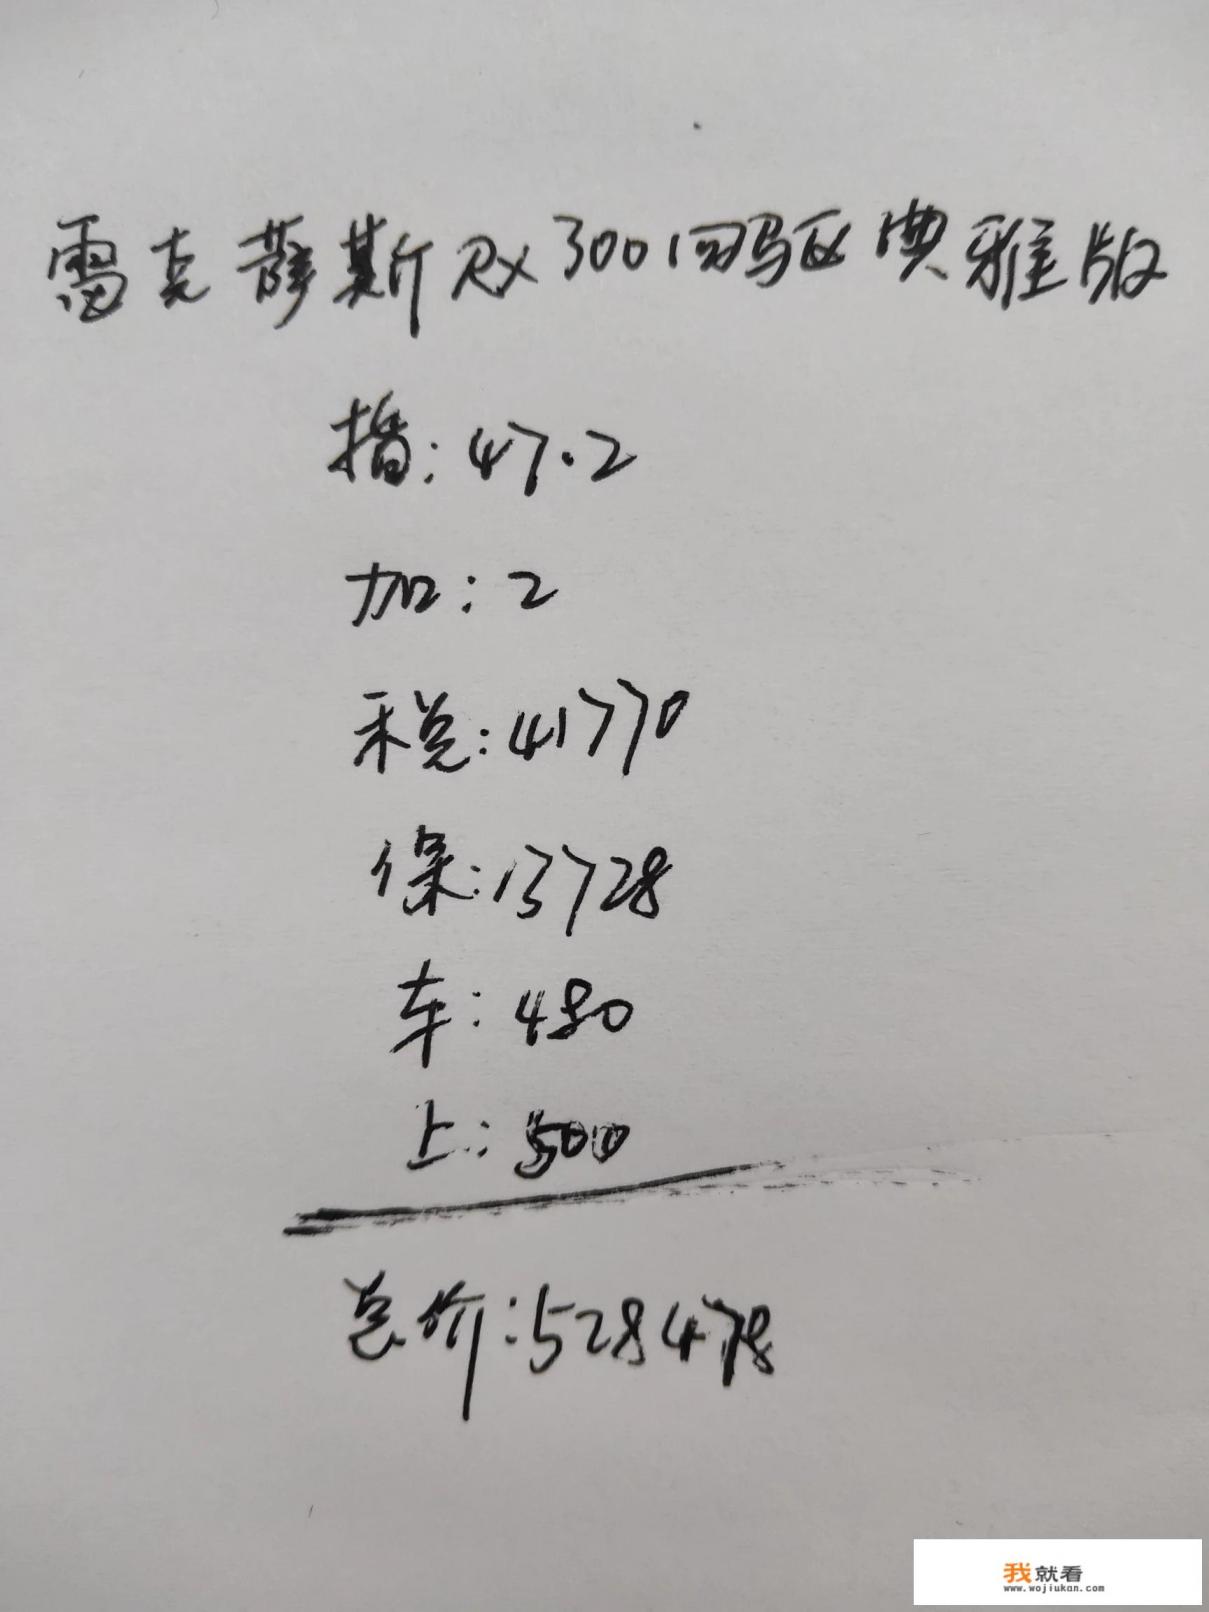 雷克萨斯RX300四驱典雅版
指:47.2
加:2
税:41770
保:13728
车:480
上:500
总价:528478
我就看
www.wojiukan.com